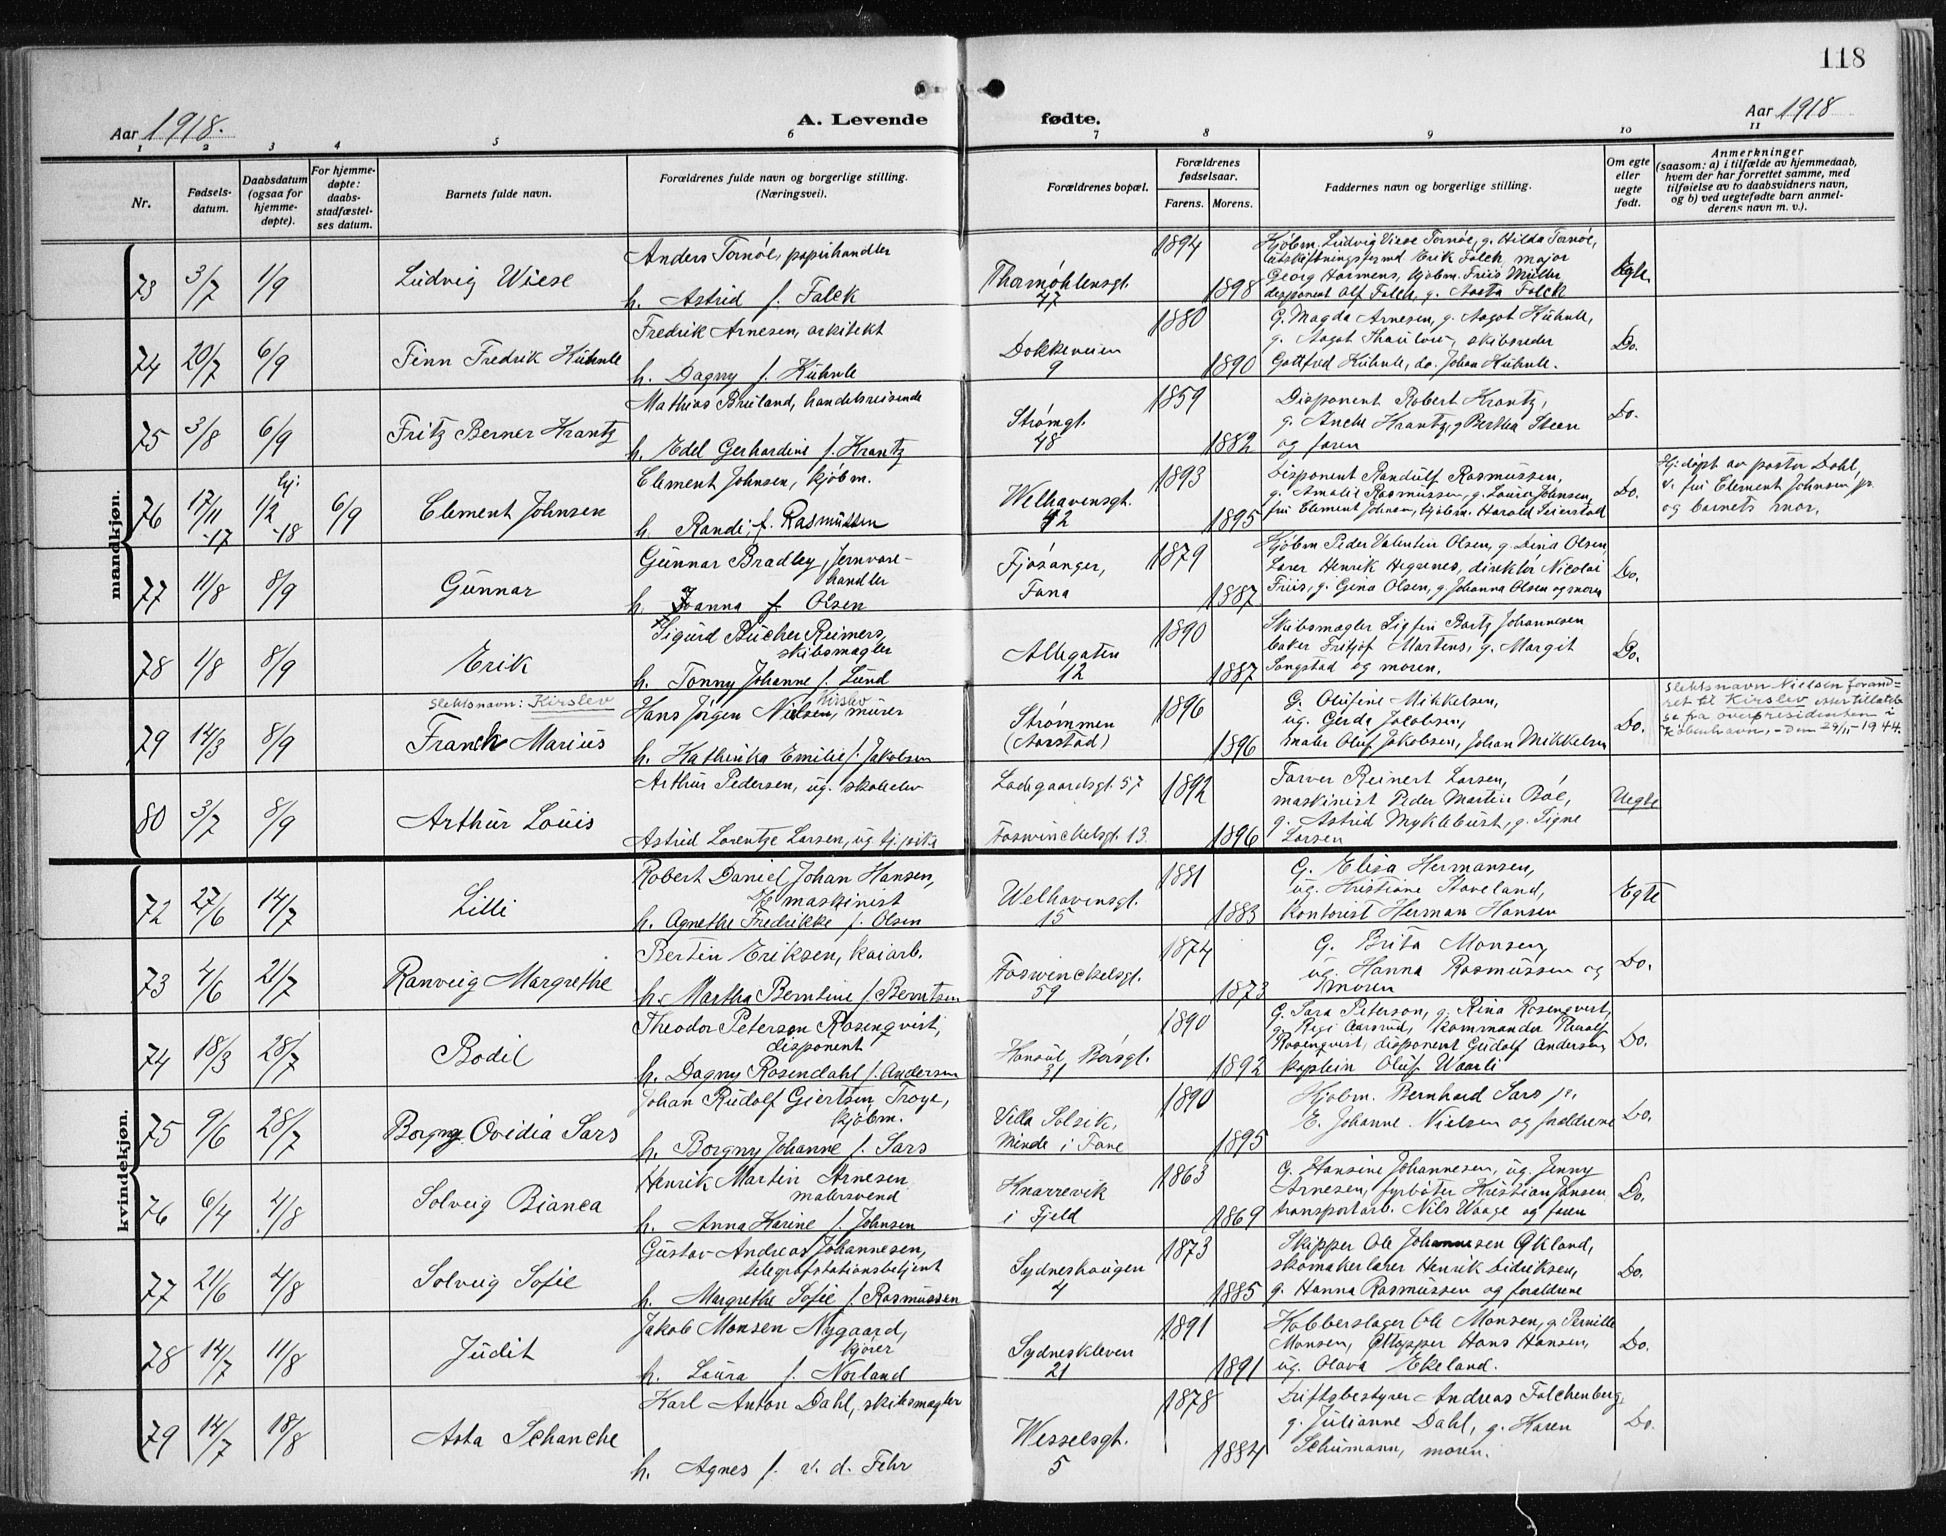 118
Aar 1918.
A. Levende fødte.
Aar 1918
1 2 3 4 5 6 7 8 9 10 11
Nr.
Fødsels-
datum.
Daabsdatum
(ogsaa for
hjemme-
døpte).
For hjemme-
døpte:
daabs-
stadfæstel-
ses datum.
Barnets fulde navn.
Forældrenes fulde navn og borgerlige stilling.
(Næringsvei).
Forældrenes bopæl.
Forældrenes
fødselsaar.
Farens. Morens.
Faddernes navn og borgerlige stilling.
Om egte
eller
uegte
født.
Anmerkninger
(saasom: a) i tilfælde av hjemmedaab,
hvem der har forrettet samme, med
tilføielse av to daabsvidners navn,
og b) ved uegtefødte barn anmel-
derens navn m. v.).
mandkjøn.
73 3/7 1/9 Ludvig Wiese
Anders Tornøe, papirhandler
h. Astrid f. Falck
Thormøhlensgt.
47
1894
1898
Kjøbm. Ludvig Wiese Tornøe, g. Hilda Tornøe,
Erik Falck, major
Georg Harmens, kjøbm. Friis Müller
disponent Olf Falck, g. Aasta Falck
Egte
74 20/7 6/9 Finn Fredrik Kühnle
Fredrik Arnesen, arkitekt
h. Dagny f. Kühnle
Dokkeveien
9
1880
1890
G. Magda Arnesen, g. Aagot Kühnle,
g. Aagot Thaulow, skibsreder
Gottfred Kühnle, do. Johan Kühnle.
Do.
75 3/8 6/9 Fritz Berner Krantz
Mathias Brüland, handelsreisende
h. Edel Gerhardine f. Krantz
Strømgt.
48
1859
1882
Disponent Robert Krantz,
g. Anche Krantz, g Bertha Steen
og faren
Do.
76 17/11 -17 hj. 1/2 -18 6/9 Clement Johnsen
Clement Johnsen, kjøbm.
h. Randi f. Rasmussen
Welhavensgt.
42
1893
1895
Disponent Randulf Rasmussen,
g. Amalie Rasmussen, g. Laura Johnsen,
fru Clement Johnsen, kjøbm. Harald Seierstad
Do.
Hj. døpt av pastor Dahl,
v. fru Clement Johnsen
og barnets mor.
77 11/8 8/9 Gunnar
Gunnar Bradley, Jernvare-
handler
h. Joanna f. Olsen
Fjøsanger,
Fana
1879
1887
Kjøbm Peder Valentin Olsen, g. Dina Olsen
Lærer Henrik Hegrenes, direktør Nicolai
Friis, g. Gina Olsen, g. Johanna Olsen og moren
Do.
78 1/8 8/9 Erik
Sigurd Bucher Reimers,
skibsmægler
h. Tonny Johanne f. Lund
Allegaten
12
1890
1887
Skibsmægler Sigfin Bartz Johannesen
baker Fritjof Martens, g. Margit
Sangstad og moren.
Do.
Slektsnavn: Kirslev
79 14/3 8/9 Franck Marius
Kirslev
Hans Jørgen Nielsen, murer
h. Kathinka Emilie f. Jakobsen
Strømmen
(Aarstad)
1896
1896
G. Olufine Mikkelsen,
ug. Gerda Jacobsen,
maler Oluf Jakobsen, Johan Mikkelsen
Do.
Slektsnavn Nielsen forand-
ret til Kirslev efter tillatel-
se fra overpresidenten i
København, - den 29/11-1944.
80 3/7 8/9 Arthur Louis
Arthur Pedersen, ug. skoelev
Astrid Lorentze Larsen, ug. tj.pike
Ladegaardsgt. 57
Foswinckelsgt. 13.
1892
1896
Farver Reinert Larsen,
maskinist Peder Martin Bøe,
g. Astrid Myklebust, g. Signe
Larsen
Uegte
kvindekjøn.
72 27/6 14/7 Lilli
Robert Daniel Johan Hansen,
maskinist
h. Agnethe Fredrikke f. Olsen
Welhavensgt.
15
1881
1883
G. Elisa Hermansen,
ug. Kristiane Staveland,
kontorist Herman Hansen
Egte
73 4/6 21/7 Ranveig Margrethe
Bertin Eriksen, kaiarb.
h. Martha Berntine f. Berntsen
Foswinckelsgt.
59
1874
1873
G. Brita Monsen,
ug. Hanna Rasmussen og
moren
Do.
74 18/3 28/7 Bodil
Theodor Peterson Rosenqvist,
disponent
h. Dagny Rosendahl f. Andersen
Konsul Børsgt.
31
1890
1892
G. Sara Peterson, g. Rina Rosenqvist,
g. Rigi Aarsrud, kommandør
Rosenqvist, disponent Gudolf Andersen,
kaptein Oluf Waarli
Do.
75 9/6 28/7 Borgny Ovidia Sars
Johan Rudolf Giertsen Troye,
kjøbm.
h. Borgny Johanne f. Sars
Villa Solvik,
Minde i Fane
1890
1895
Kjøbm. Bernhard Sars jr.
E. Johanne Nielsen og
Do.
76 6/4 4/8 Solveig Bianca
Henrik Martin Arnesen
malersvend
h. Anna Karine f. Johnsen
Knarrevik
i Fjeld
1863
1869
G. Hansine Johannesen, ug. Jenny
Arnesen, fyrbøter Kristian Jansen
transportarb. Nils Waage og faren
Do.
77 21/6 4/8 Solveig Sofie
Gustav Andreas Johannesen,
telegrafstationsbetjent
h. Margrethe Sofie f. Rasmussen
Sydneshaugen
4
1873
1885
Skipper Ole Johannesen Økland,
skomakerlærer Henrik Didriksen,
g. Hanna Rasmussen og forældrene
Do.
78 14/7 11/8 Judit
Jakob Monsen Nygaard,
kjører
h. Laura f. Norland
Sydneskleven
21
1891
1891
Kobberslager Ole Monsen, g. Pernille
Monsen, Hans Hansen,
ug. Olava Ekeland.
Do.
79 14/7 18/8 Asta Schanche
Karl Anton Dahl, skibsmægler
h. Agnes f. v. d. Fehr
Wesselsgt.
5
1878
1884
Driftsbestyrer Andreas Falchenberg,
g. Julianne Dahl, g. Karen
Schumann, moren.
Do.